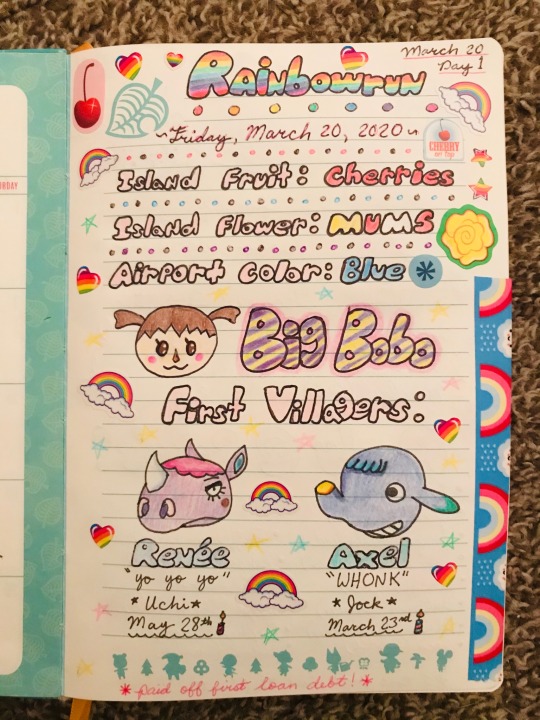 March 20
Day 1
Rainbowrun
~Friday, March 20, 2020~
CHERRY
Island Fruit: Cherries
Island Flower: MUMS
Airport Color: Blue
Big Bobo
First Villagers:
Renée Axel
"yo yo yo" "WHONK"
*Uchi* *Jock*
May 28th March 23rd
*paid off first loan debt!*